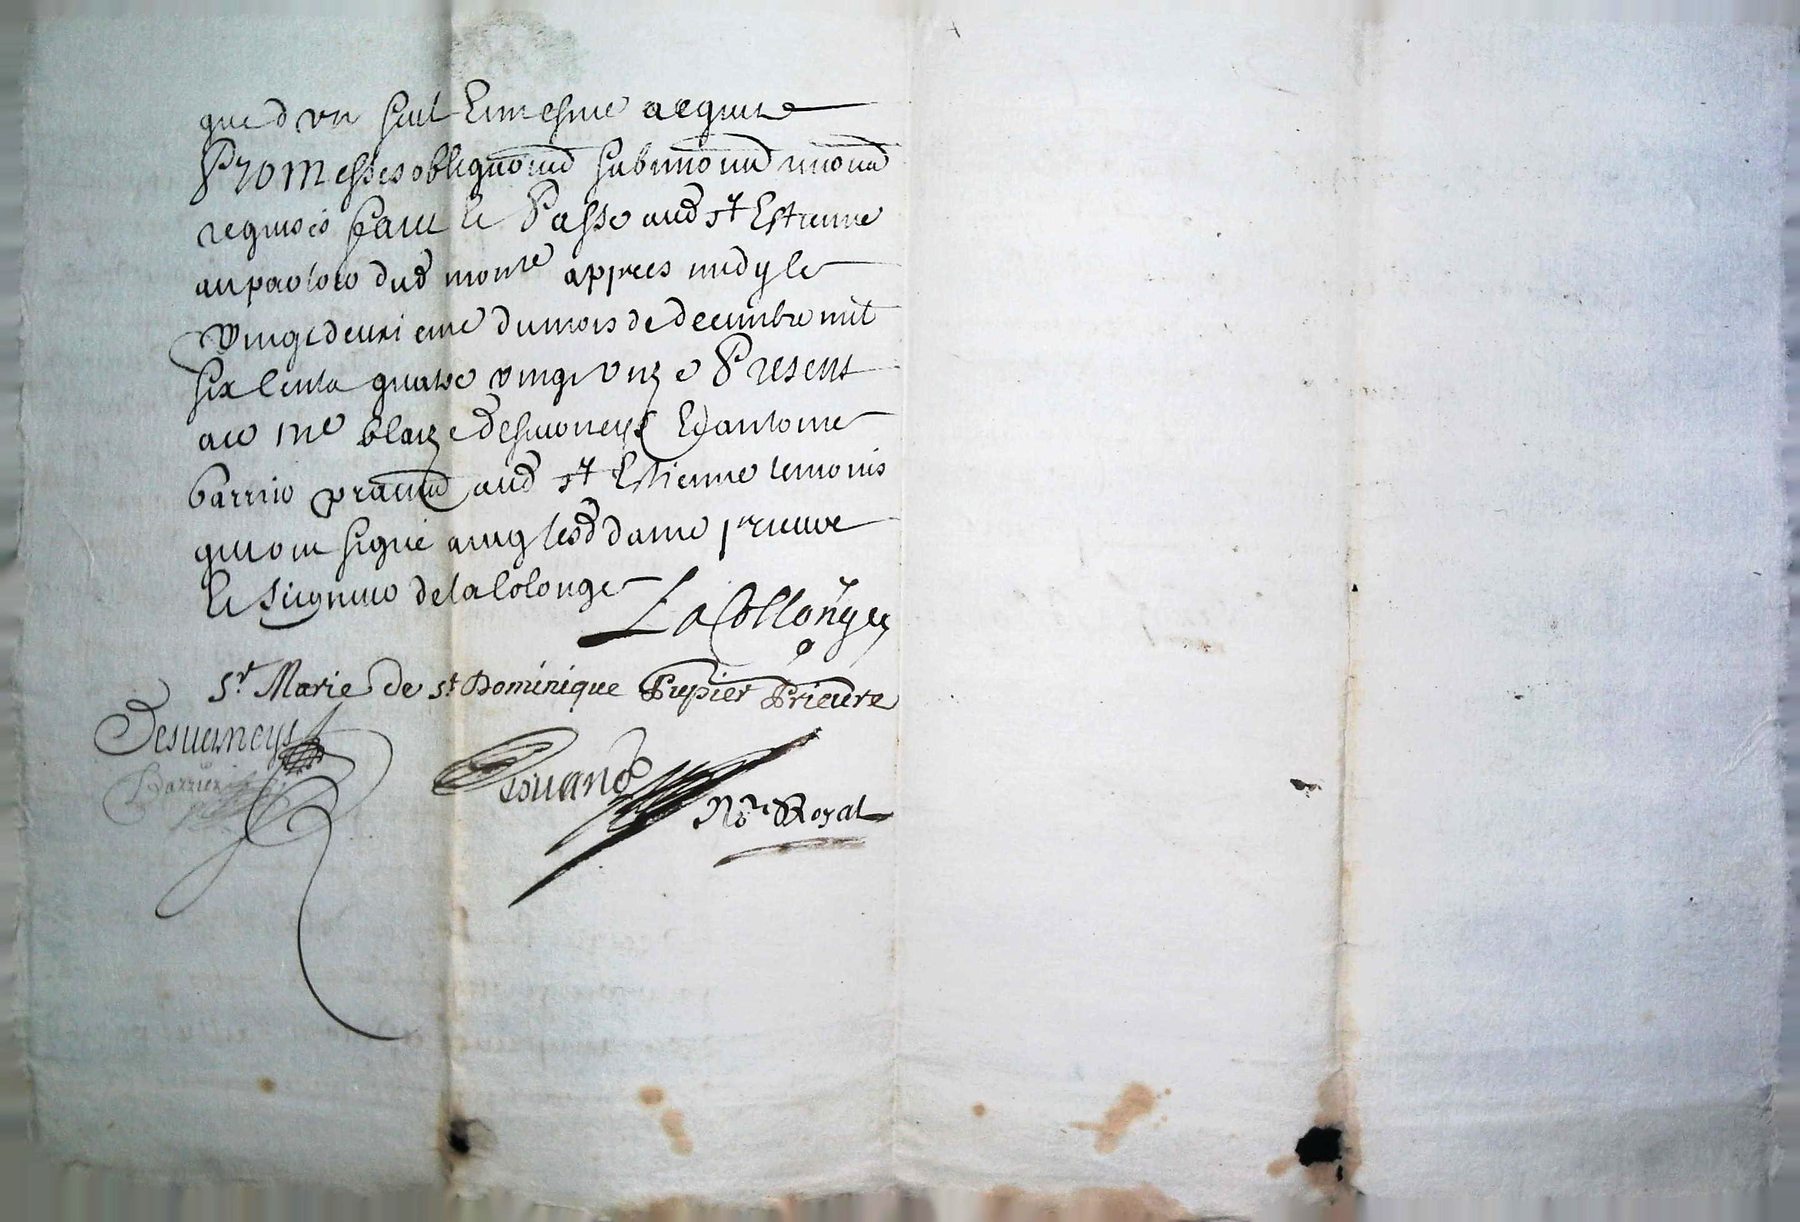 que d un seul Et mesme acquict
Promesses obligãond submiõnd renõnd
requises faict & Passe aud st Estienne
au parloir dud monre appres midy le
vingt deuxi eme du mois de decembre mil
six cents quatre vingt unze Present
ace me blaize desvorneys Et antoine
barrier praticiend aud st Estienne temoins
qui ont signé avecq lesd dame prieure
Et seigneur de la Colonge
La Collonge
Sr. Marie de st Dominique Pupier Prieure
Desverneys
Barrier
Nore Royal